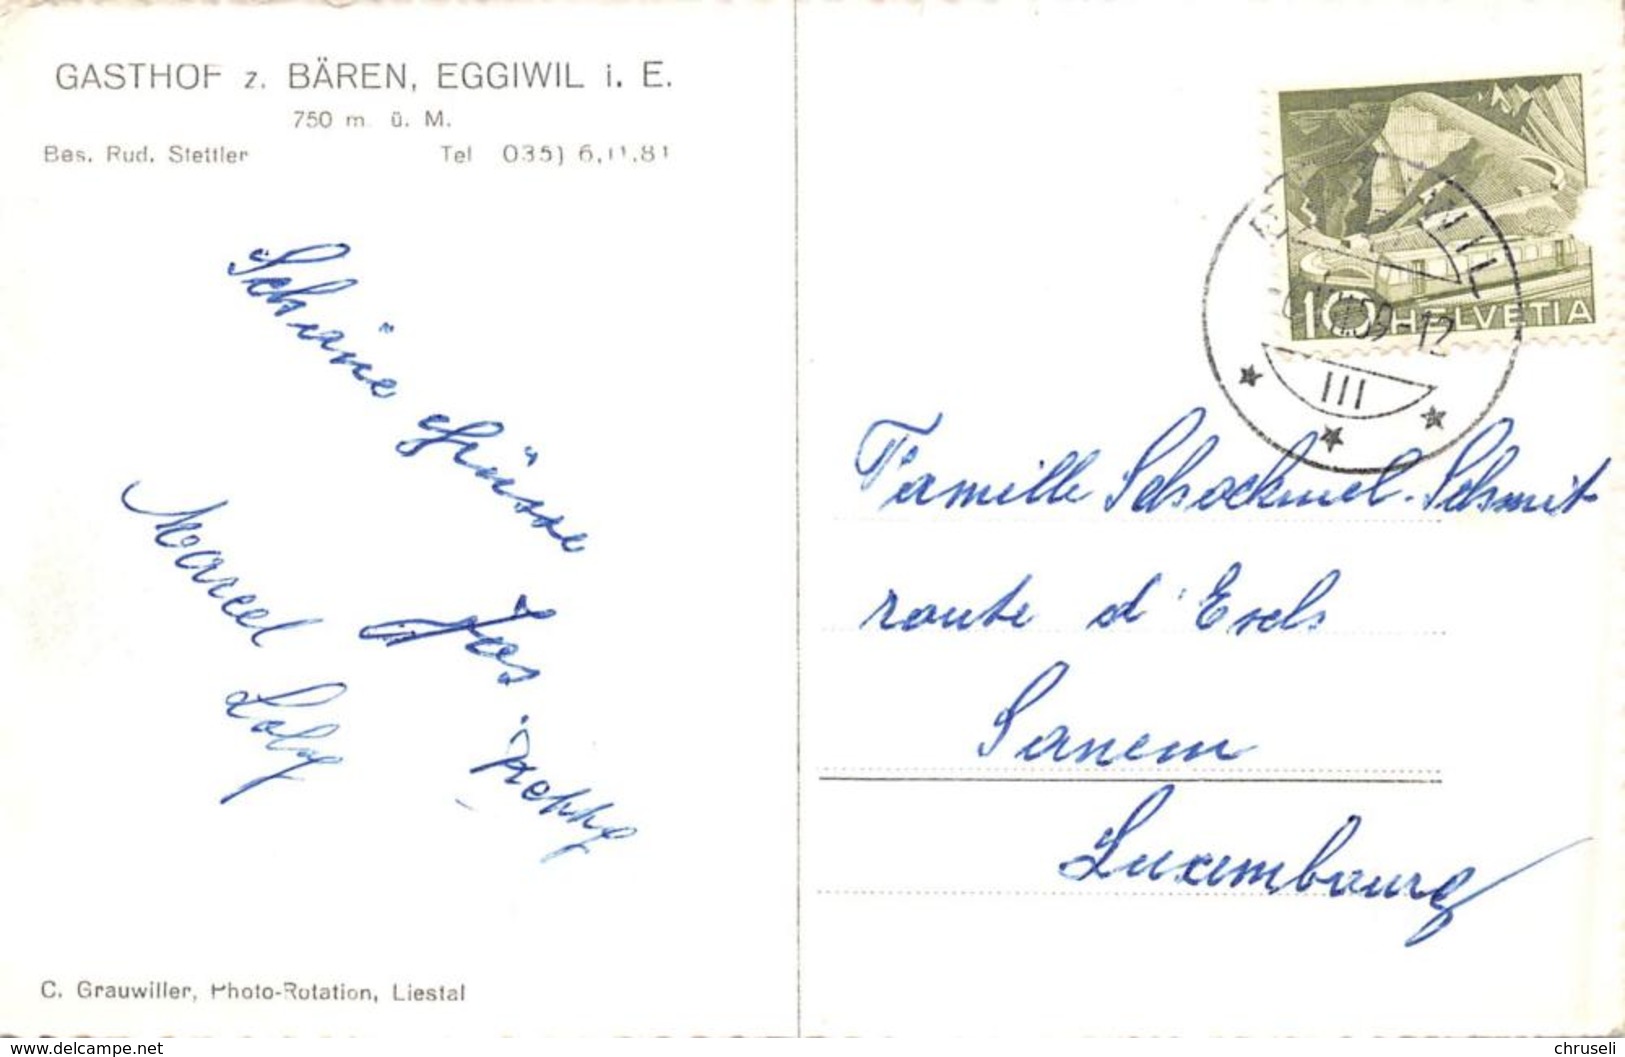 GASTHOF z. BÄREN, EGGIWIL i. E.
750 m ü. M.
Bes. Rud. Stettler Tel 035) 6.11.81
Schöne Grüsse
Marcel
Jos
C. Grauwiller, Photo-Rotation, Liestal
10 HELVETIA
III
Famille Schockmel-Schmit
route d'Esch
Sanem
Luxembourg
www.delcampe.net
chruseli